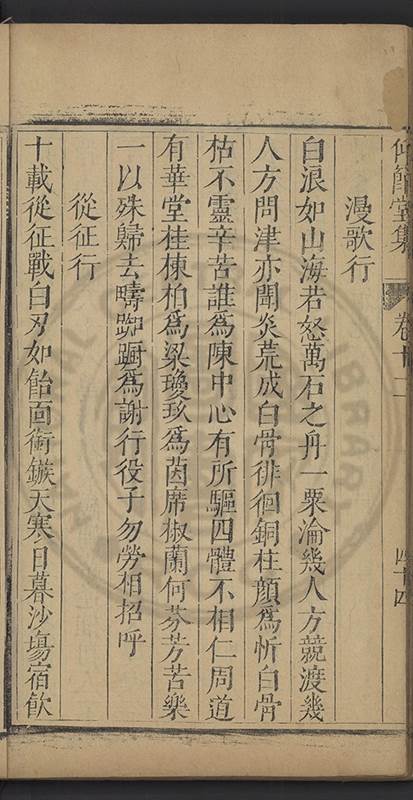 仰節堂集
卷十二
四十四
漫歌行
白浪如山海若怒萬石之舟一粟淪幾人方競渡幾
人方問津亦聞炎荒成白骨徘徊銅柱顏爲忻白骨
枯不靈辛苦誰爲陳中心有所驅四體不相仁周道
有華堂桂棟柏爲梁瓊玖爲茵席椒蘭何芬芳苦樂
一以殊歸去疇踟躕爲謝行役子勿勞相招呼
從征行
十載從征戰白刃如飴面衝鏃天寒日暮沙場宿飲